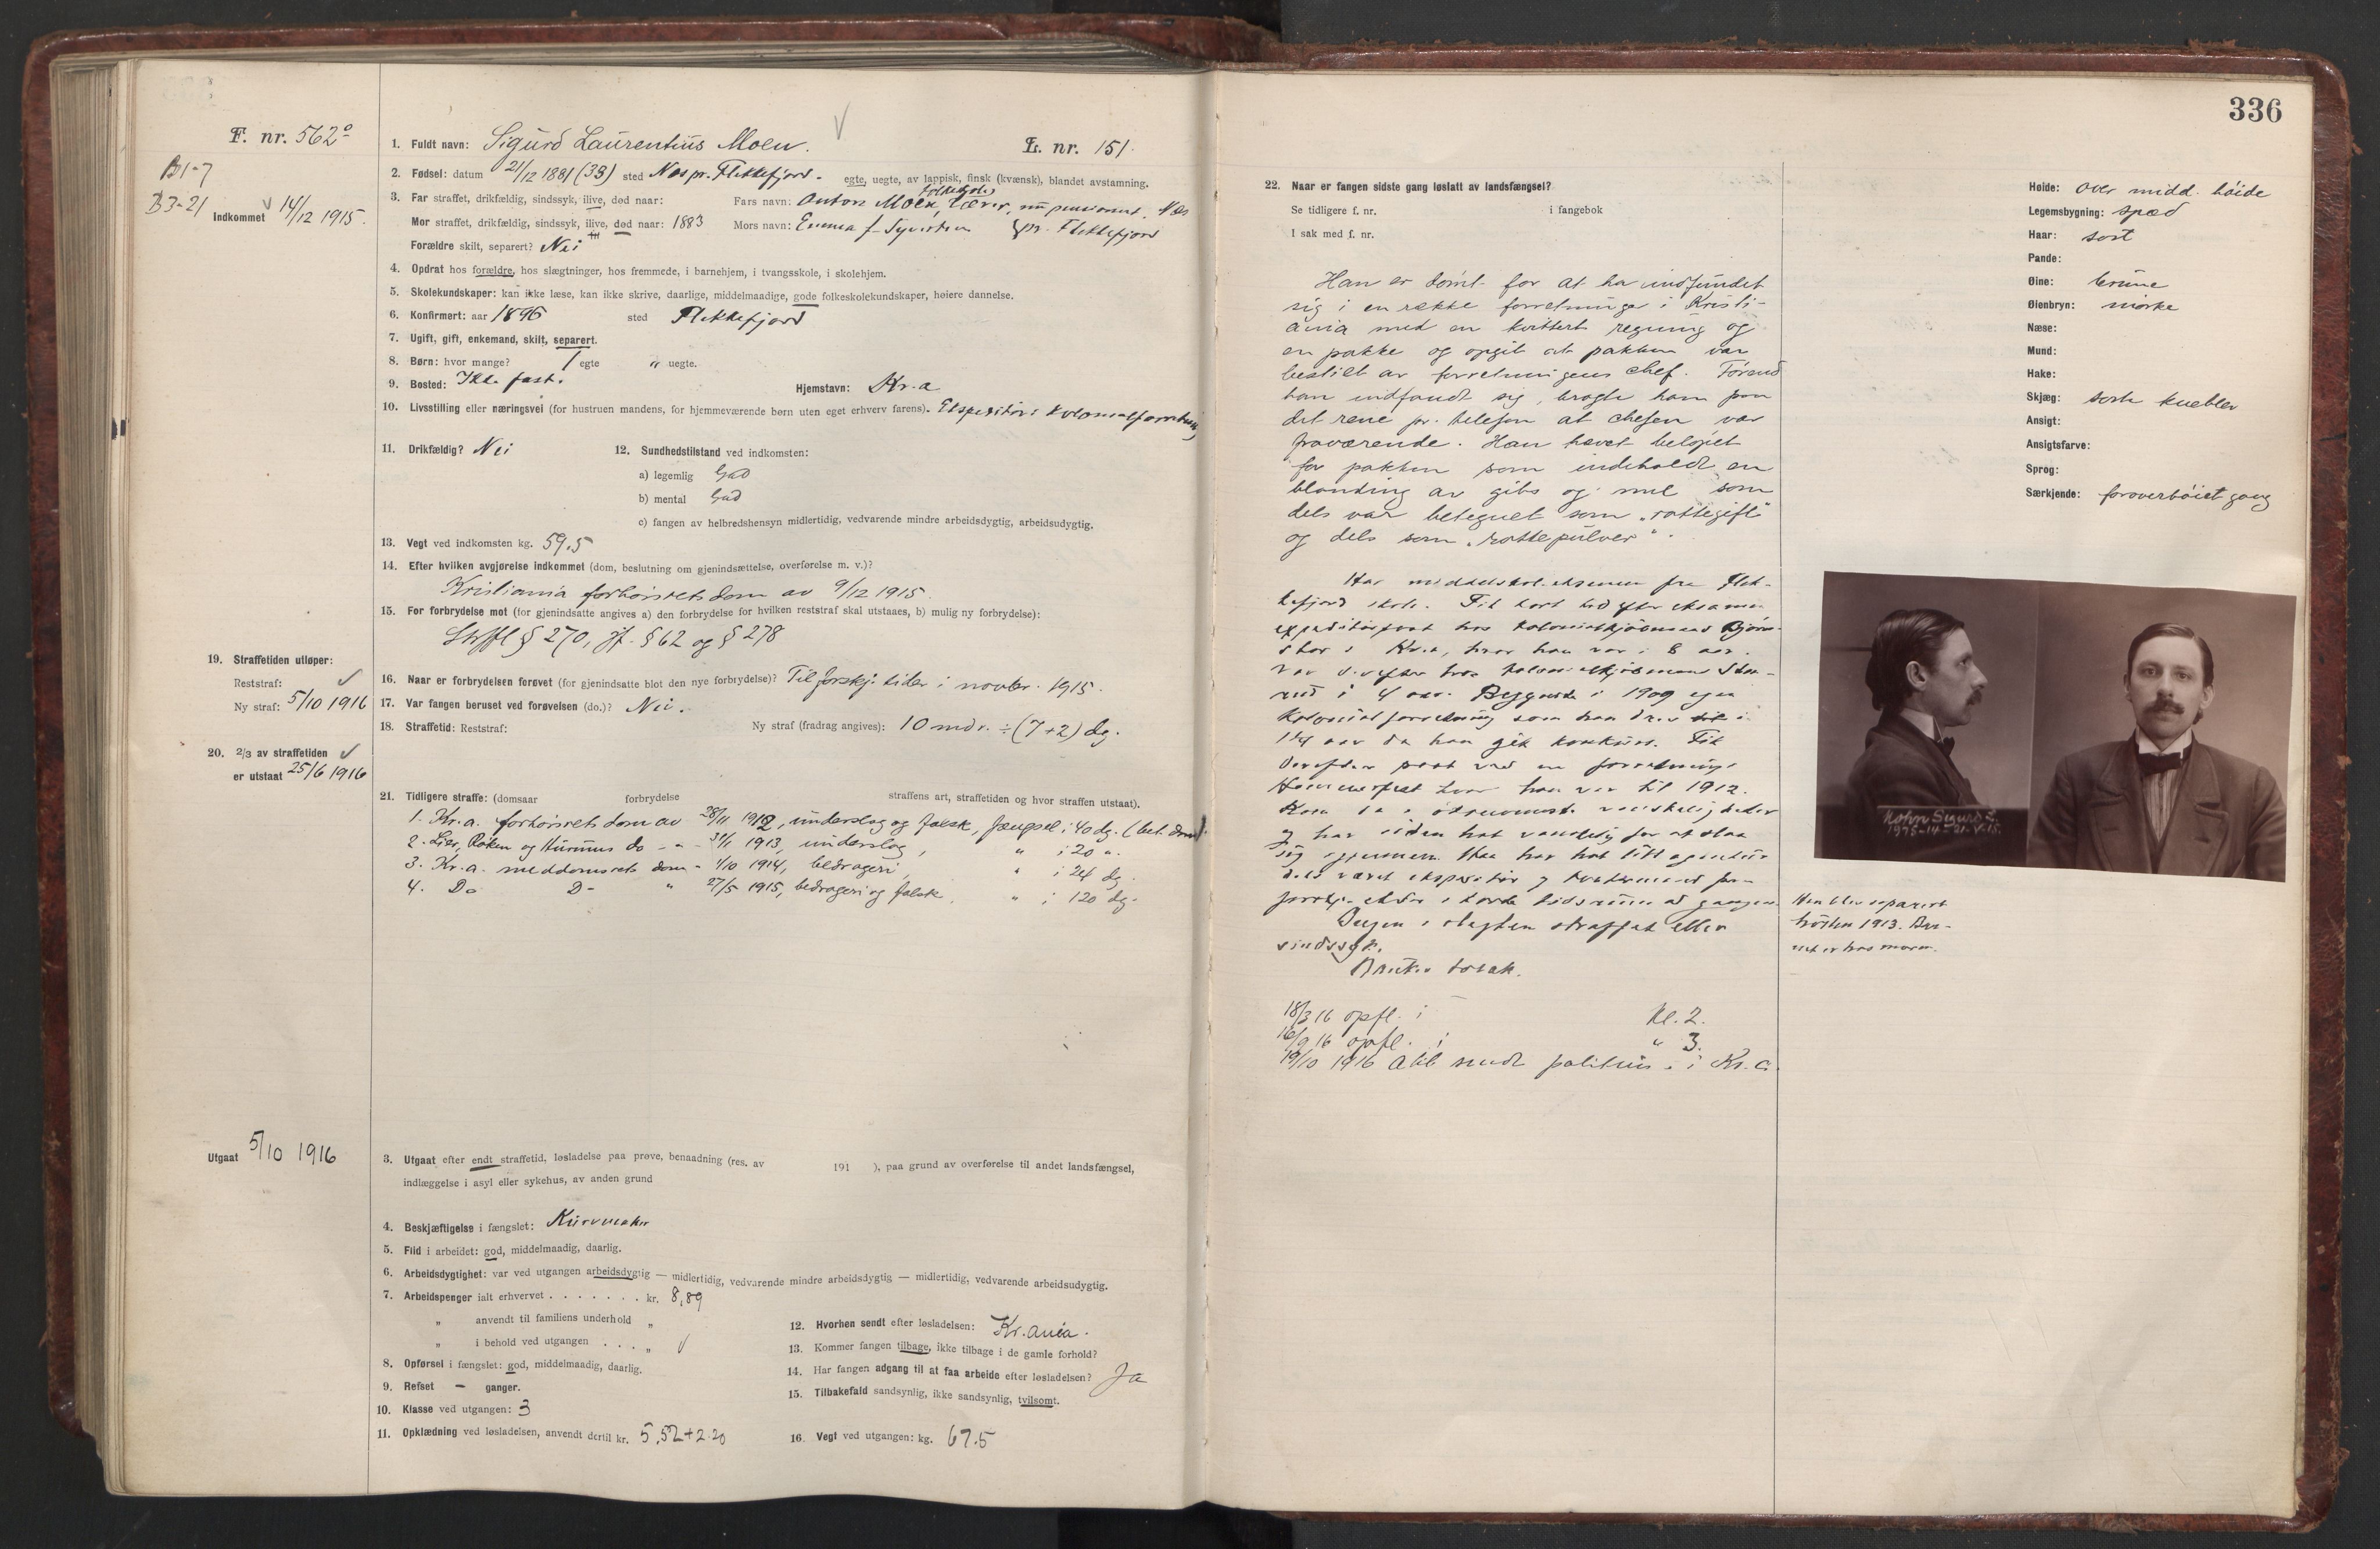 F. nr. 562º
B1-7
B3-21
Indkommet 14/12 1915.
1. Fuldt navn: Sigurd Laurentius Moen.
L. nr. 151.
2. Fødsel: datum 21/12 1881 (33) sted Nes pr. Flekkefjord. egte, uegte, av lappisk, finsk (kvænsk), blandet avstamning.
3. Far straffet, drikfældig, sindssyk, ilive, død naar: Fars navn: Anton Moen, lærer, nu pensionert. Nes
Mor straffet, drikfældig, sindssyk, ilive, død naar: 1883 Mors navn: Emma f. pr. Flekkefjord
Forældre skilt, separert? Nei
4. Opdrat hos forældre, hos slægtninger, hos fremmede, i barnehjem, i tvangsskole, i skolehjem.
5. Skolekundskaper: kan ikke læse, kan ikke skrive, daarlige, middelmaadige, gode folkeskolekundskaper, høiere dannelse.
6. Konfirmert: aar 1896 sted Flekkefjord
7. Ugift, gift, enkemand, skilt, separert.
8. Børn: hvor mange? 1 egte " uegte.
9. Bosted: Ikke fast. Hjemstavn: Kr.a
10. Livsstilling eller næringsvei (for hustruen mandens, for hjemmeværende børn uten eget erhverv farens). Ekspeditør i kolonialforretning
11. Drikfældig? Nei
12. Sundhedstilstand ved indkomsten:
a) legemlig God
b) mental God
c) fangen av helbredshensyn midlertidig, vedvarende mindre arbeidsdygtig, arbeidsudygtig.
13. Vegt ved indkomsten kg. 59.5
14. Efter hvilken avgjørelse indkommet (dom, beslutning om gjenindsættelse, overførelse m. v.)?
Kristiania forhørsrets dom av 9/12 1915.
15. For forbrydelse mot (for gjenindsatte angives a) den forbrydelse for hvilken reststraf skal utstaaes, b) mulig ny forbrydelse):
Strffl § 270, jf. § 62 og § 278
16. Naar er forbrydelsen forøvet (for gjenindsatte blot den nye forbrydelse)? Til forskj. tider i novbr. 1915.
17. Var fangen beruset ved forøvelsen (do.)? Nei.
18. Straffetid: Reststraf: Ny straf (fradrag angives): 10 mdr. ÷ (7+2) dg.
19. Straffetiden utløper:
Reststraf:
Ny straf: 5/10 1916
20. 2/3 av straffetiden
er utstaat 25/6 1916
21. Tidligere straffe: (domsaar forbrydelse straffens art, straffetiden og hvor straffen utstaat).
1. Kr.a. forhørsrets dom av 28/11 1912, underslag og falsk, fængsel i 40 dg. (bet. dom).
2. Lier, Røken og Hurums do - " - 31/1 1913, underslag, " i 20 ".
3. Kr.a. meddomsrets dom - 1/10 1914, bedrageri, " i 24 dg.
4. Do D- " 27/5 1915, bedrageri og falsk, " i 120 dg.
Utgaat 5/10 1916
3. Utgaat efter endt straffetid, løsladelse paa prøve, benaadning (res. av 191 ), paa grund av overførelse til andet landsfængsel,
indlæggelse i asyl eller sykehus, av anden grund
4. Beskjæftigelse i fængslet: Kurvmaker
5. Flid i arbeidet: god, middelmaadig, daarlig.
6. Arbeidsdygtighet: var ved utgangen arbeidsdygtig — midlertidig, vedvarende mindre arbeidsdygtig — midlertidig, vedvarende arbeidsudygtig.
7. Arbeidspenger ialt erhvervet . . . . . . . kr. 8,89
" anvendt til familiens underhold "
" i behold ved utgangen . . . "
8. Opførsel i fængslet: god, middelmaadig, daarlig.
9. Refset - ganger.
10. Klasse ved utgangen: 3
11. Opklædning ved løsladelsen, anvendt dertil kr. 5,52+2.20
12. Hvorhen sendt efter løsladelsen: Kr.ania.
13. Kommer fangen tilbage, ikke tilbage i de gamle forhold?
14. Har fangen adgang til at faa arbeide efter løsladelsen? Ja
15. Tilbakefald sandsynlig, ikke sandsynlig, tvilsomt.
16. Vegt ved utgangen: kg. 67.5
336
22. Naar er fangen sidste gang løslatt av landsfængsel?
Se tidligere f. nr. i fangebok
I sak med f. nr.
Han er dømt for at ha indfundet
sig i en række forretninger i Kristi-
ania med en kvittert regning og
en pakke og opgit at pakken var
bestilt av forretningens chef. Førend
han indfandt sig, bragte han paa
det rene pr. telefon at chefen var
fraværende. Han hævet beløpet
for pakken som indeholdt en
blanding av gibs og mel som
dels var betegnet som "rottegift"
og dels som "rottepulver".
Har middelskoleeksamen fra Flek-
kefjord skole. Fik kort tid efter eksamen
expeditørpost hos kolonialkjøbmand
i Kr.a, hvor han var i 8 aar.
Var derefter hos kolonialkjøbmand
i 4 aar. Begyndte i 1909 egen
kolonialforretning som han drev i
1 1/4 aar da han gik konkurs. Fik
derefter post ved en forretning i
Hammerfest hvor han var til 1912.
Kom da i økonomiske vanskeligheter
og har siden hat vanskelig for at slaa
sig igjennem. Han har hat litt agentur
dels været ekspeditør og
i korte tidsrum ad gangen.
Ingen i slegten straffet eller
sindssyk.
Bruker tobak.
18/3 16 opfl. i Kl. 2.
16/9 16 opfl. i " 3.
19/10 1916 Abl sendt politiets i Kr.a.
Høide: over midd. høide
Legemsbygning: spæd
Haar: sort
Pande:
Øine: brune
Øienbryn: mørke
Næse:
Mund:
Hake:
Skjæg: sorte knebler
Ansigt:
Ansigtsfarve:
Sprog:
Særkjende: foroverbøiet gang
Mohn Sigurd L.
1975-14-21-V-15.
Han blev separert
høsten 1913. Bar-
net er hos moren.